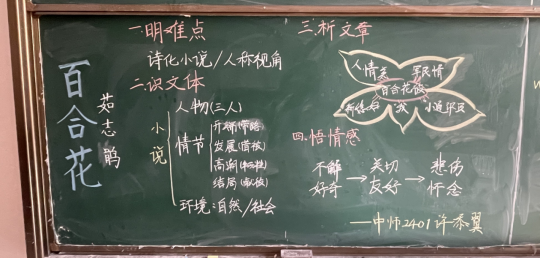 百合花
茹志鹃
一.明难点
诗化小说/人称视角
二.识文体
小说
人物(三人)
情节
开端(带路)
发展(借被)
高潮
结局(献被)
环境:自然/社会
三.析文章
人情美
军民情
百合花被
"我"
四.悟情感
不解
好奇
→
关切
友好
→
悲伤
怀念
——中师2401许